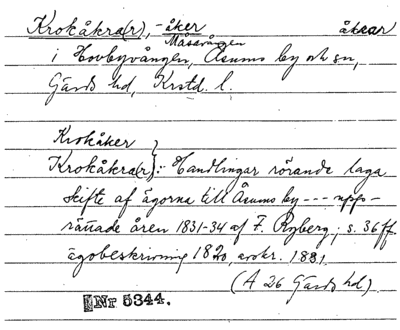 Krokåkra(r), -åker åkrar
Måsavången
i Hovbyvången, Åsums by och sn,
Gärds hd, Krstd. l.
Krokåker
Krokåkra(r): Handlingar rörande laga
skifte af ägorna till Åsums by --- upp-
rättade åren 1831-34 af F. Ryberg; s. 36 ff.
ägobeskrivning 1820, avskr. 1831.
(A 26 Gärds hd).
Nr 5344.